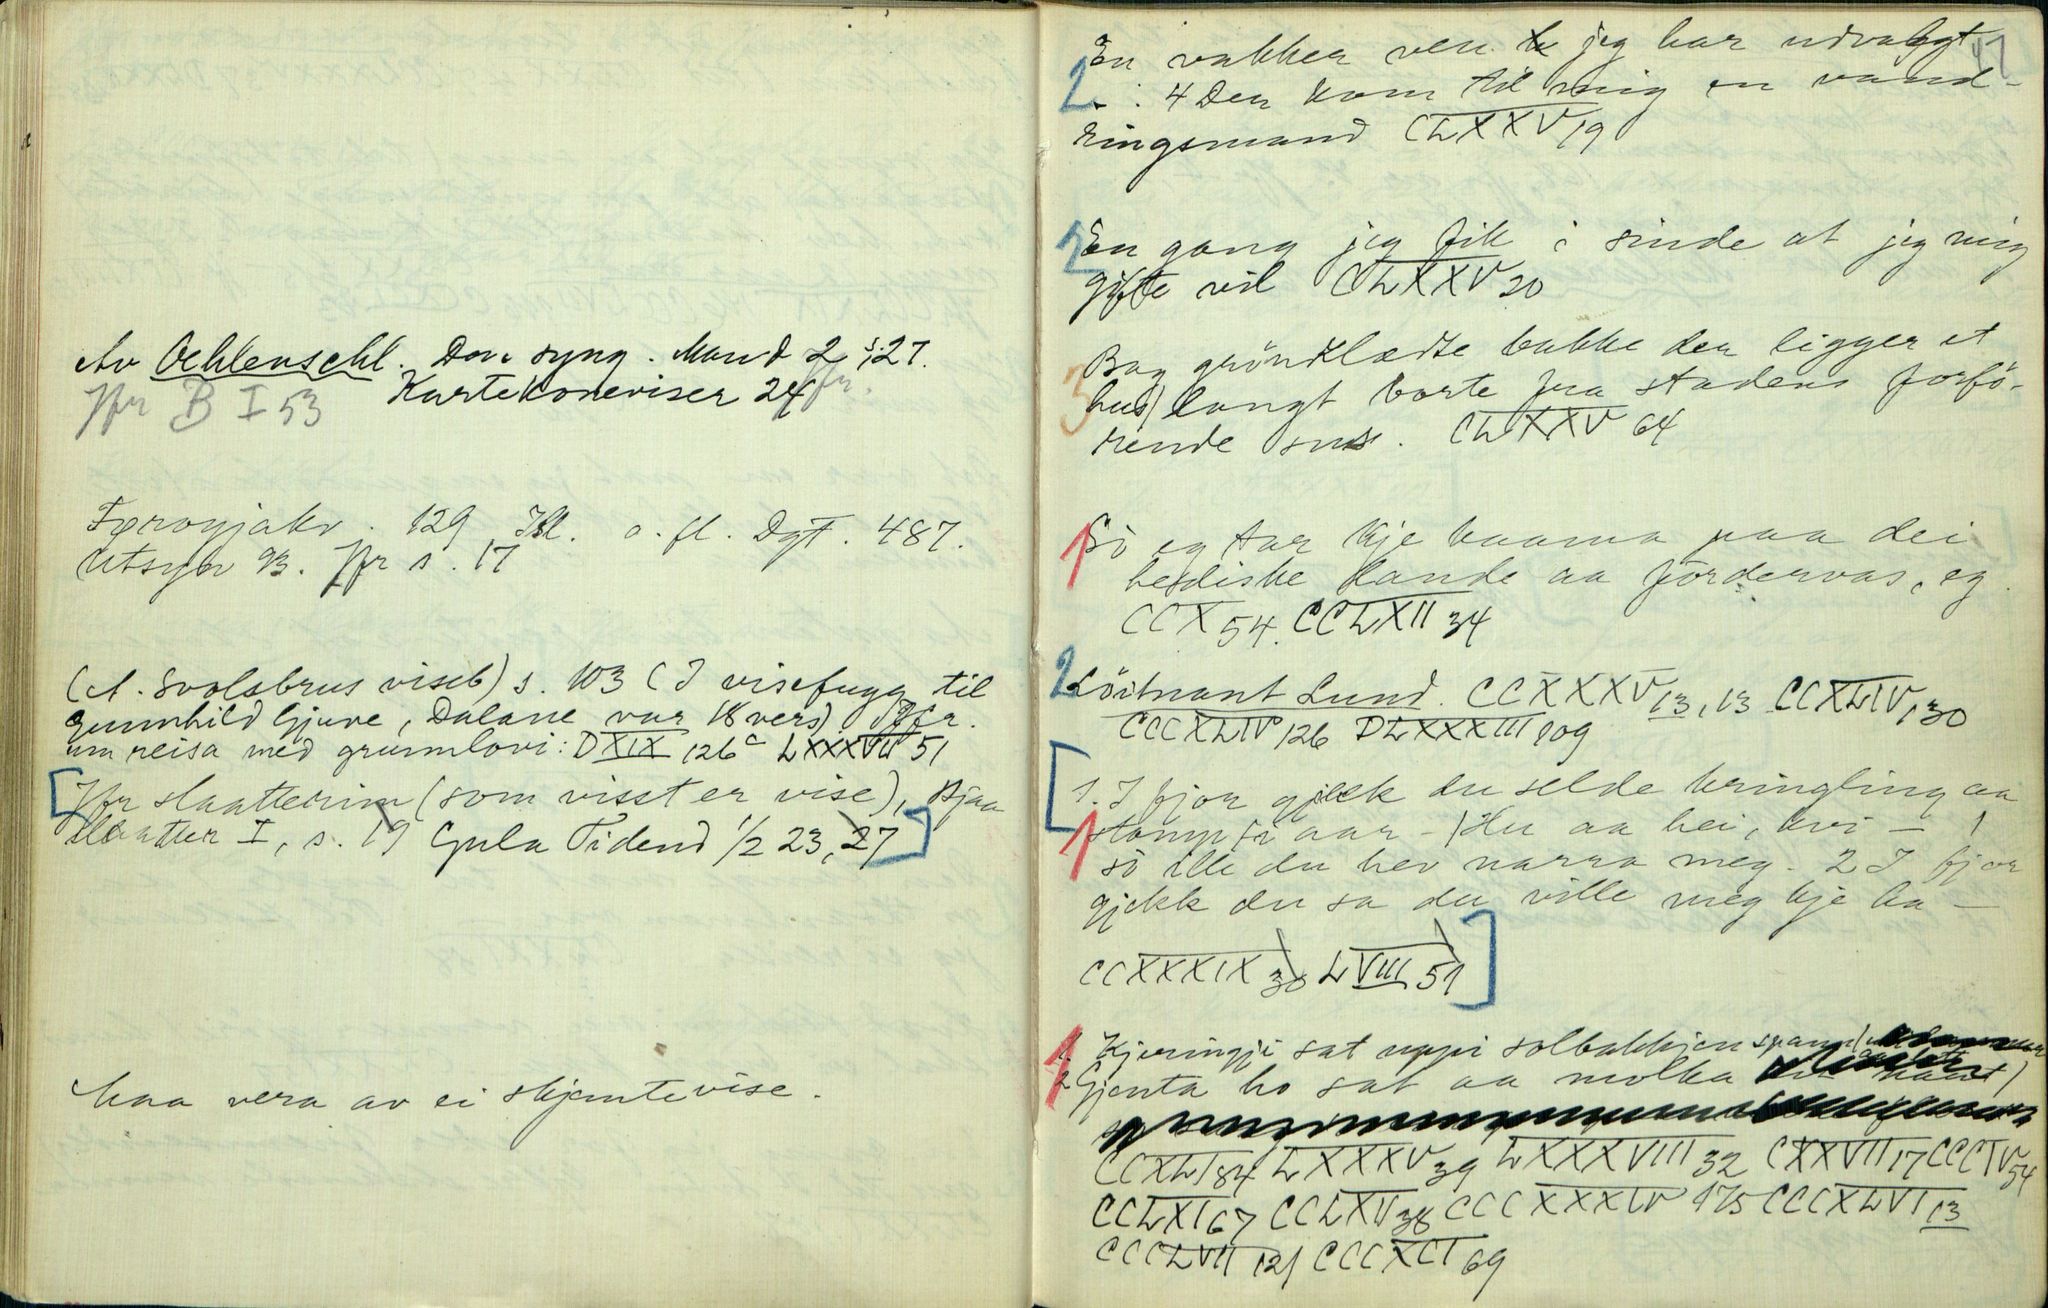 Av Oehlenschl. Den syng. Mand 2 s. 27.
Jfr B I 53 Kartekoneviser 24 jfr.
Færoyjakv. 129 o. fl. DgF. 487.
Utsyn 93. Jfr s. 17
(A. Svolsbrus viseb) s. 103 (I visefugg til
Gunnhild Gjuve, Dalane var 18 vers) Jfr.
um reisa med grunnlovi: DXIX 126c LXXXVII 51
[Jfr slaatterim (som visst er vise), Bjaa
slaatter I, s. 19 Gula Tidend 1/2 23, 27]
Maa vera av ei skjemtevise.
47
En vakker ven jeg har udvalgt
2 4 Der kom til mig en vand-
ringsmand CLXXV 19
2 En gang jeg fik i sinde at jeg mig
gifte vil CLXXV 20
Bag grøndklædte bakke der ligger et
3 hus) langt borte fra stadens forfö-
rende sus. CLXXV 64
1 So eg tar kje baana paa dei
hediske lande aa fördervas, eg
CCX 54. CCLXII 34
2 Löitnant Lund. CCXXXV 13, 13 CCXLIV 130
CCCXLIV 126 DLXXXIII 109
[1. I fjor gjekk du selde kringling aa
1 stomp (i aar - (Hu aa hei, kvi -
so ille du hev narra meg. 2 I fjor
gjekk du sa du ville meg kje ha -
CCXXXIX 38 LVIII 51]
1 1. Kjeringji sat uppi solbakkjen spann
2 Gjenta ho sat aa molka
CCXLI 84 LXXXV 39 LXXXVIII 32 CXXVII 17 CCCIV 54
CCLXI 67 CCLXII 38 CCCXXXIV 175 CCCXLVI 13
CCCLVII 121 CCCXCI 69